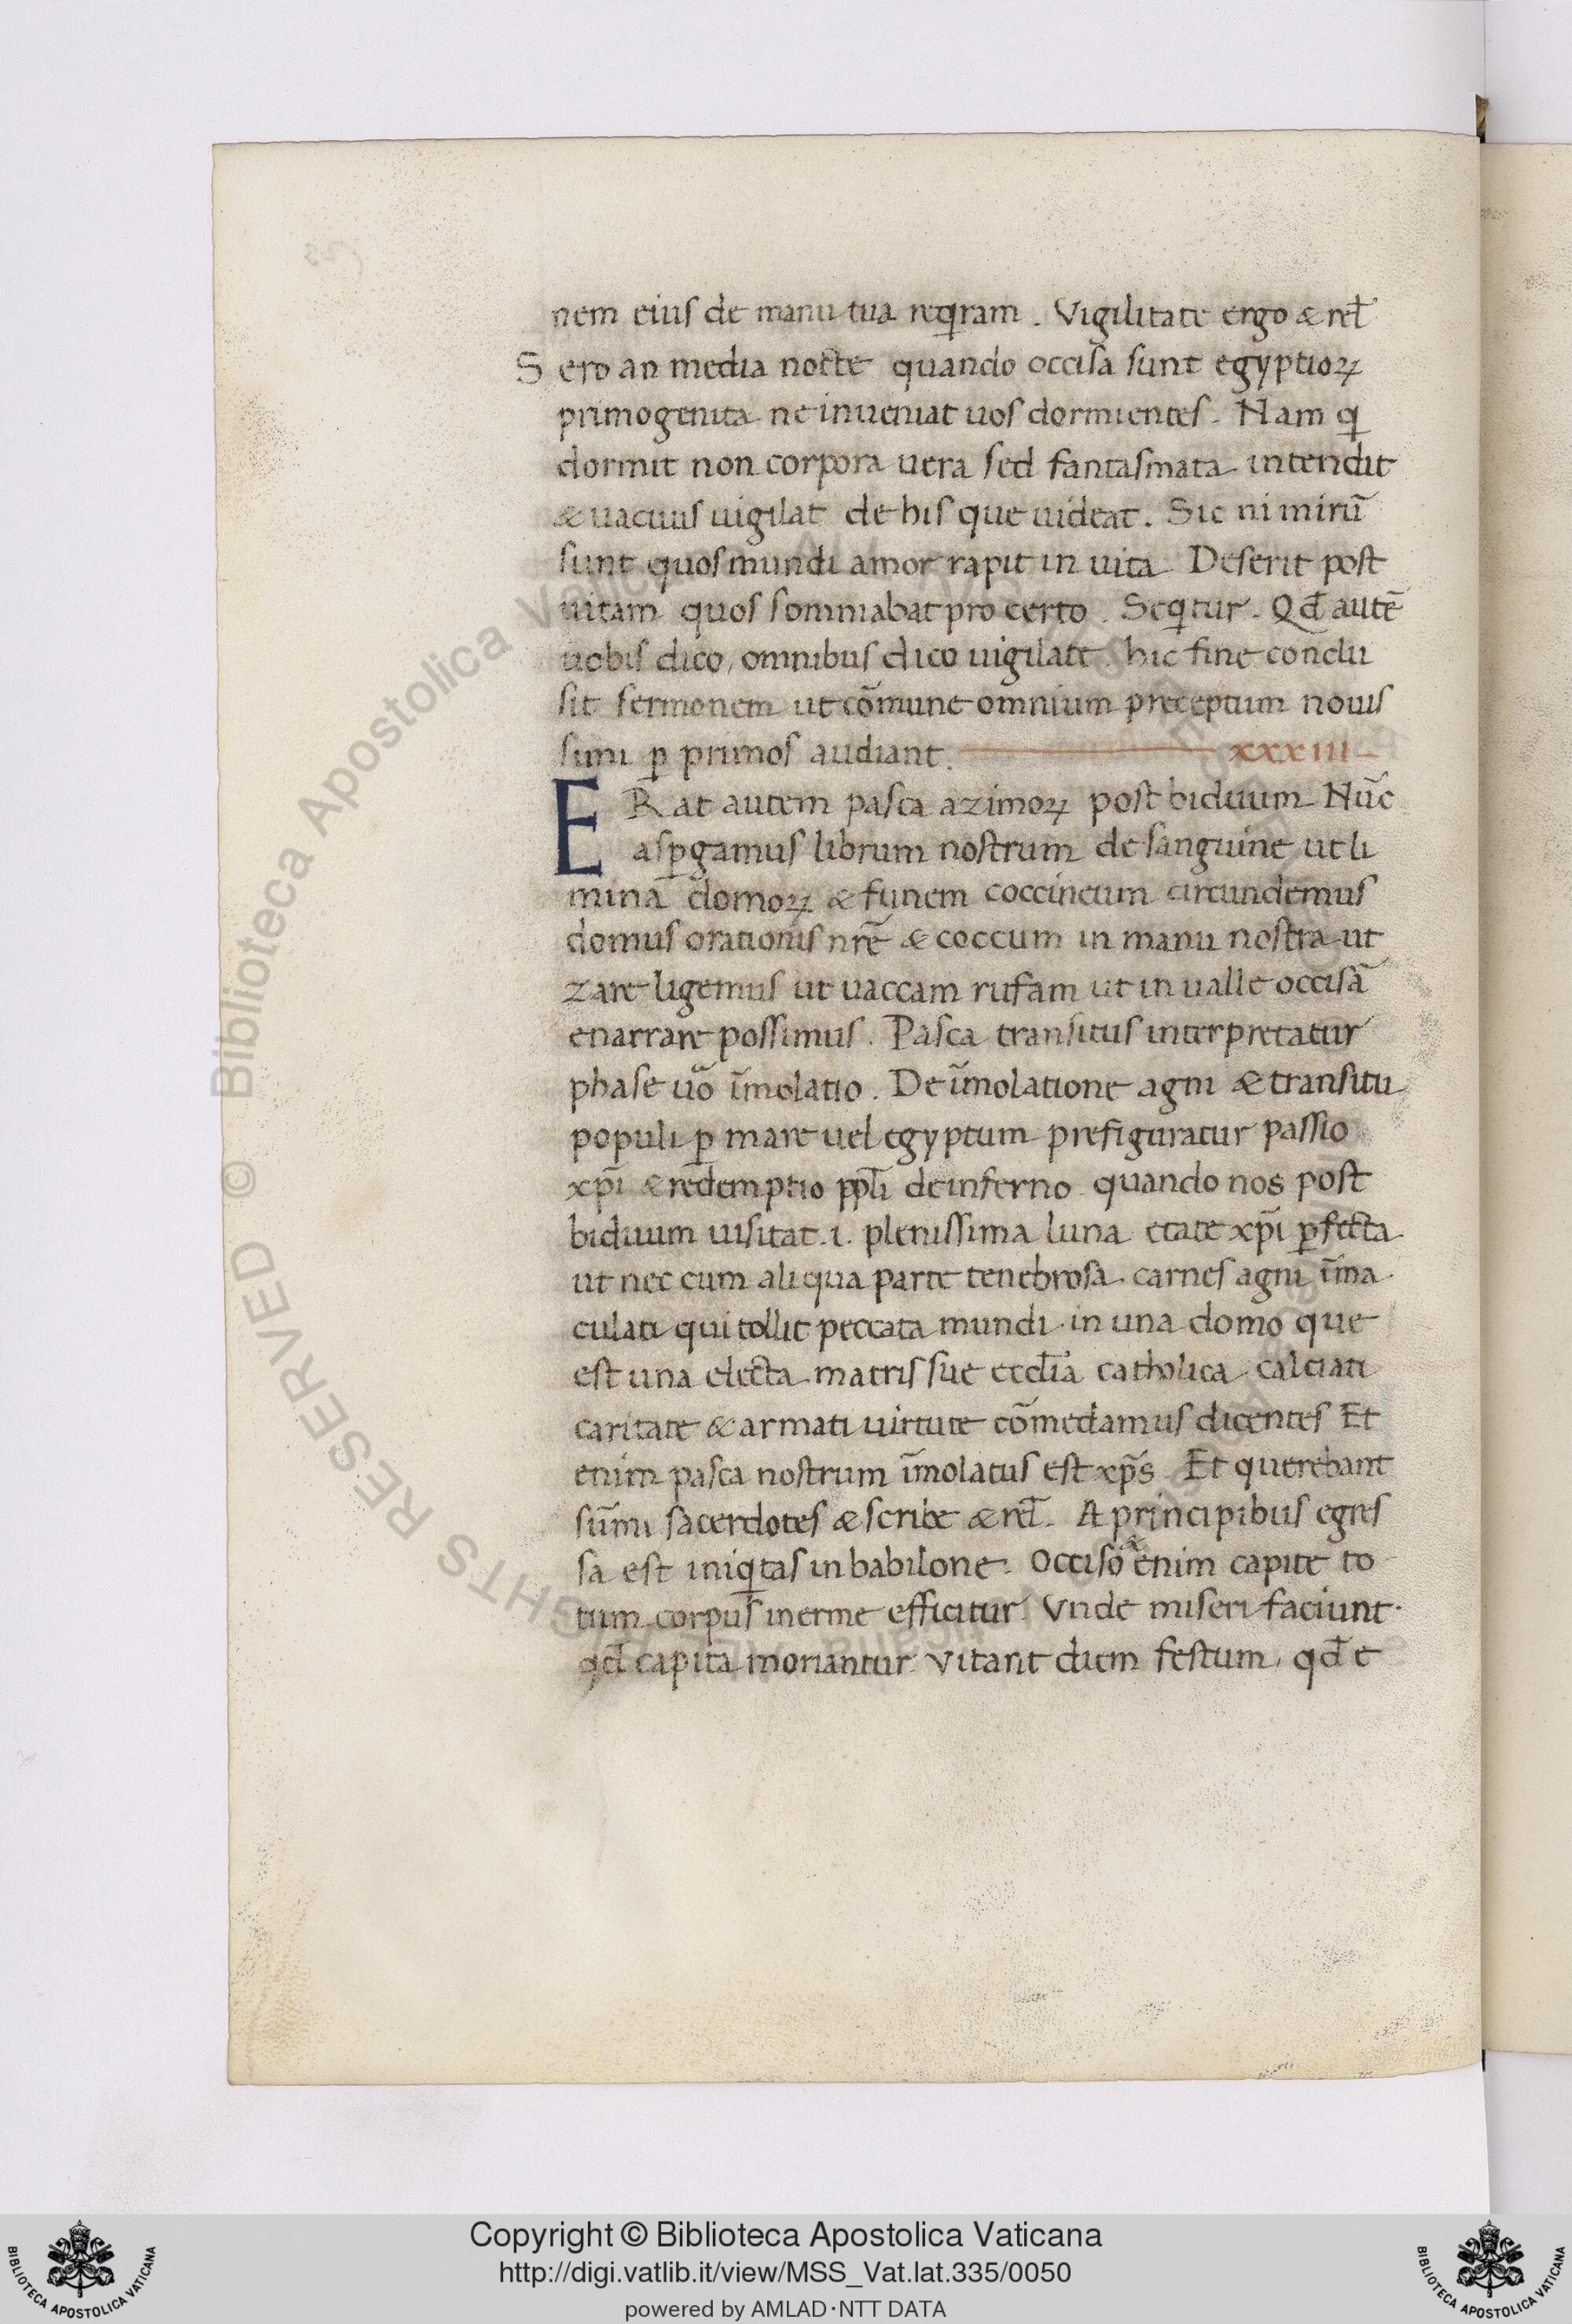 nem eius de manu tua reqiram. Vigilitate ergo & rel̄
Sero an media nocte quando occisa sunt egyptioꝝ
primogenita ne inueniat uos dormientes. Nam qi
dormit non corpora uera sed fantasmata intendit
& uacuus uigilat de his que uideat. Sic ni mirū
sunt quos mundi amor rapit in uita Deserit post
uitam quos somniabat pro certo. Seqitur. Qd̄ autē
uobis dico, omnibus dico uigilate. hic fine conclu
sit sermonem ut cōmune omnium preceptum nouis
simi ꝑ primos audiant. xxxiii
ERat autem pasca azimoꝝ post biduum Nūc
asꝑgamus librum nostrum de sanguine ut li
mina domoꝝ & funem coccineum circundemus
domus orationis nrē & coccum in manu nostra ut
zare ligemus ut uaccam rufam ut in ualle occisā
enarrare possimus. Pasca transitus interpretatur
phase uō īmolatio. De īmolatione agni & transitu
populi ꝑ mare uel egyptum prefiguratur passio
xp̄i & redemptio ppl̄i de inferno quando nos post
biduum uisitat .i. plenissima luna etate xp̄i ꝑfecta
ut nec cum aliqua parte tenebrosa carnes agni īma
culati qui tollit peccata mundi in una domo que
est una electa matris sue eccl̄ia catholica calciati
caritate & armati uirtute cōmedamus dicentes Et
enim pasca nostrum īmolatus est xp̄s Et querebant
sūmi sacerdotes & scribe & rel̄. A principibus egres
sa est iniqitas in babilone. Occiso enim capite to
tum corpus inerme efficitur. Vnde miseri faciunt
qd̄ capita moriantur. Vitant diem festum, qd̄ e
Copyright © Biblioteca Apostolica Vaticana
http://digi.vatlib.it/view/MSS_Vat.lat.335/0050
powered by AMLAD·NTT DATA
BIBLIOTECA APOSTOLICA VATICANA
BIBLIOTECA APOSTOLICA VATICANA